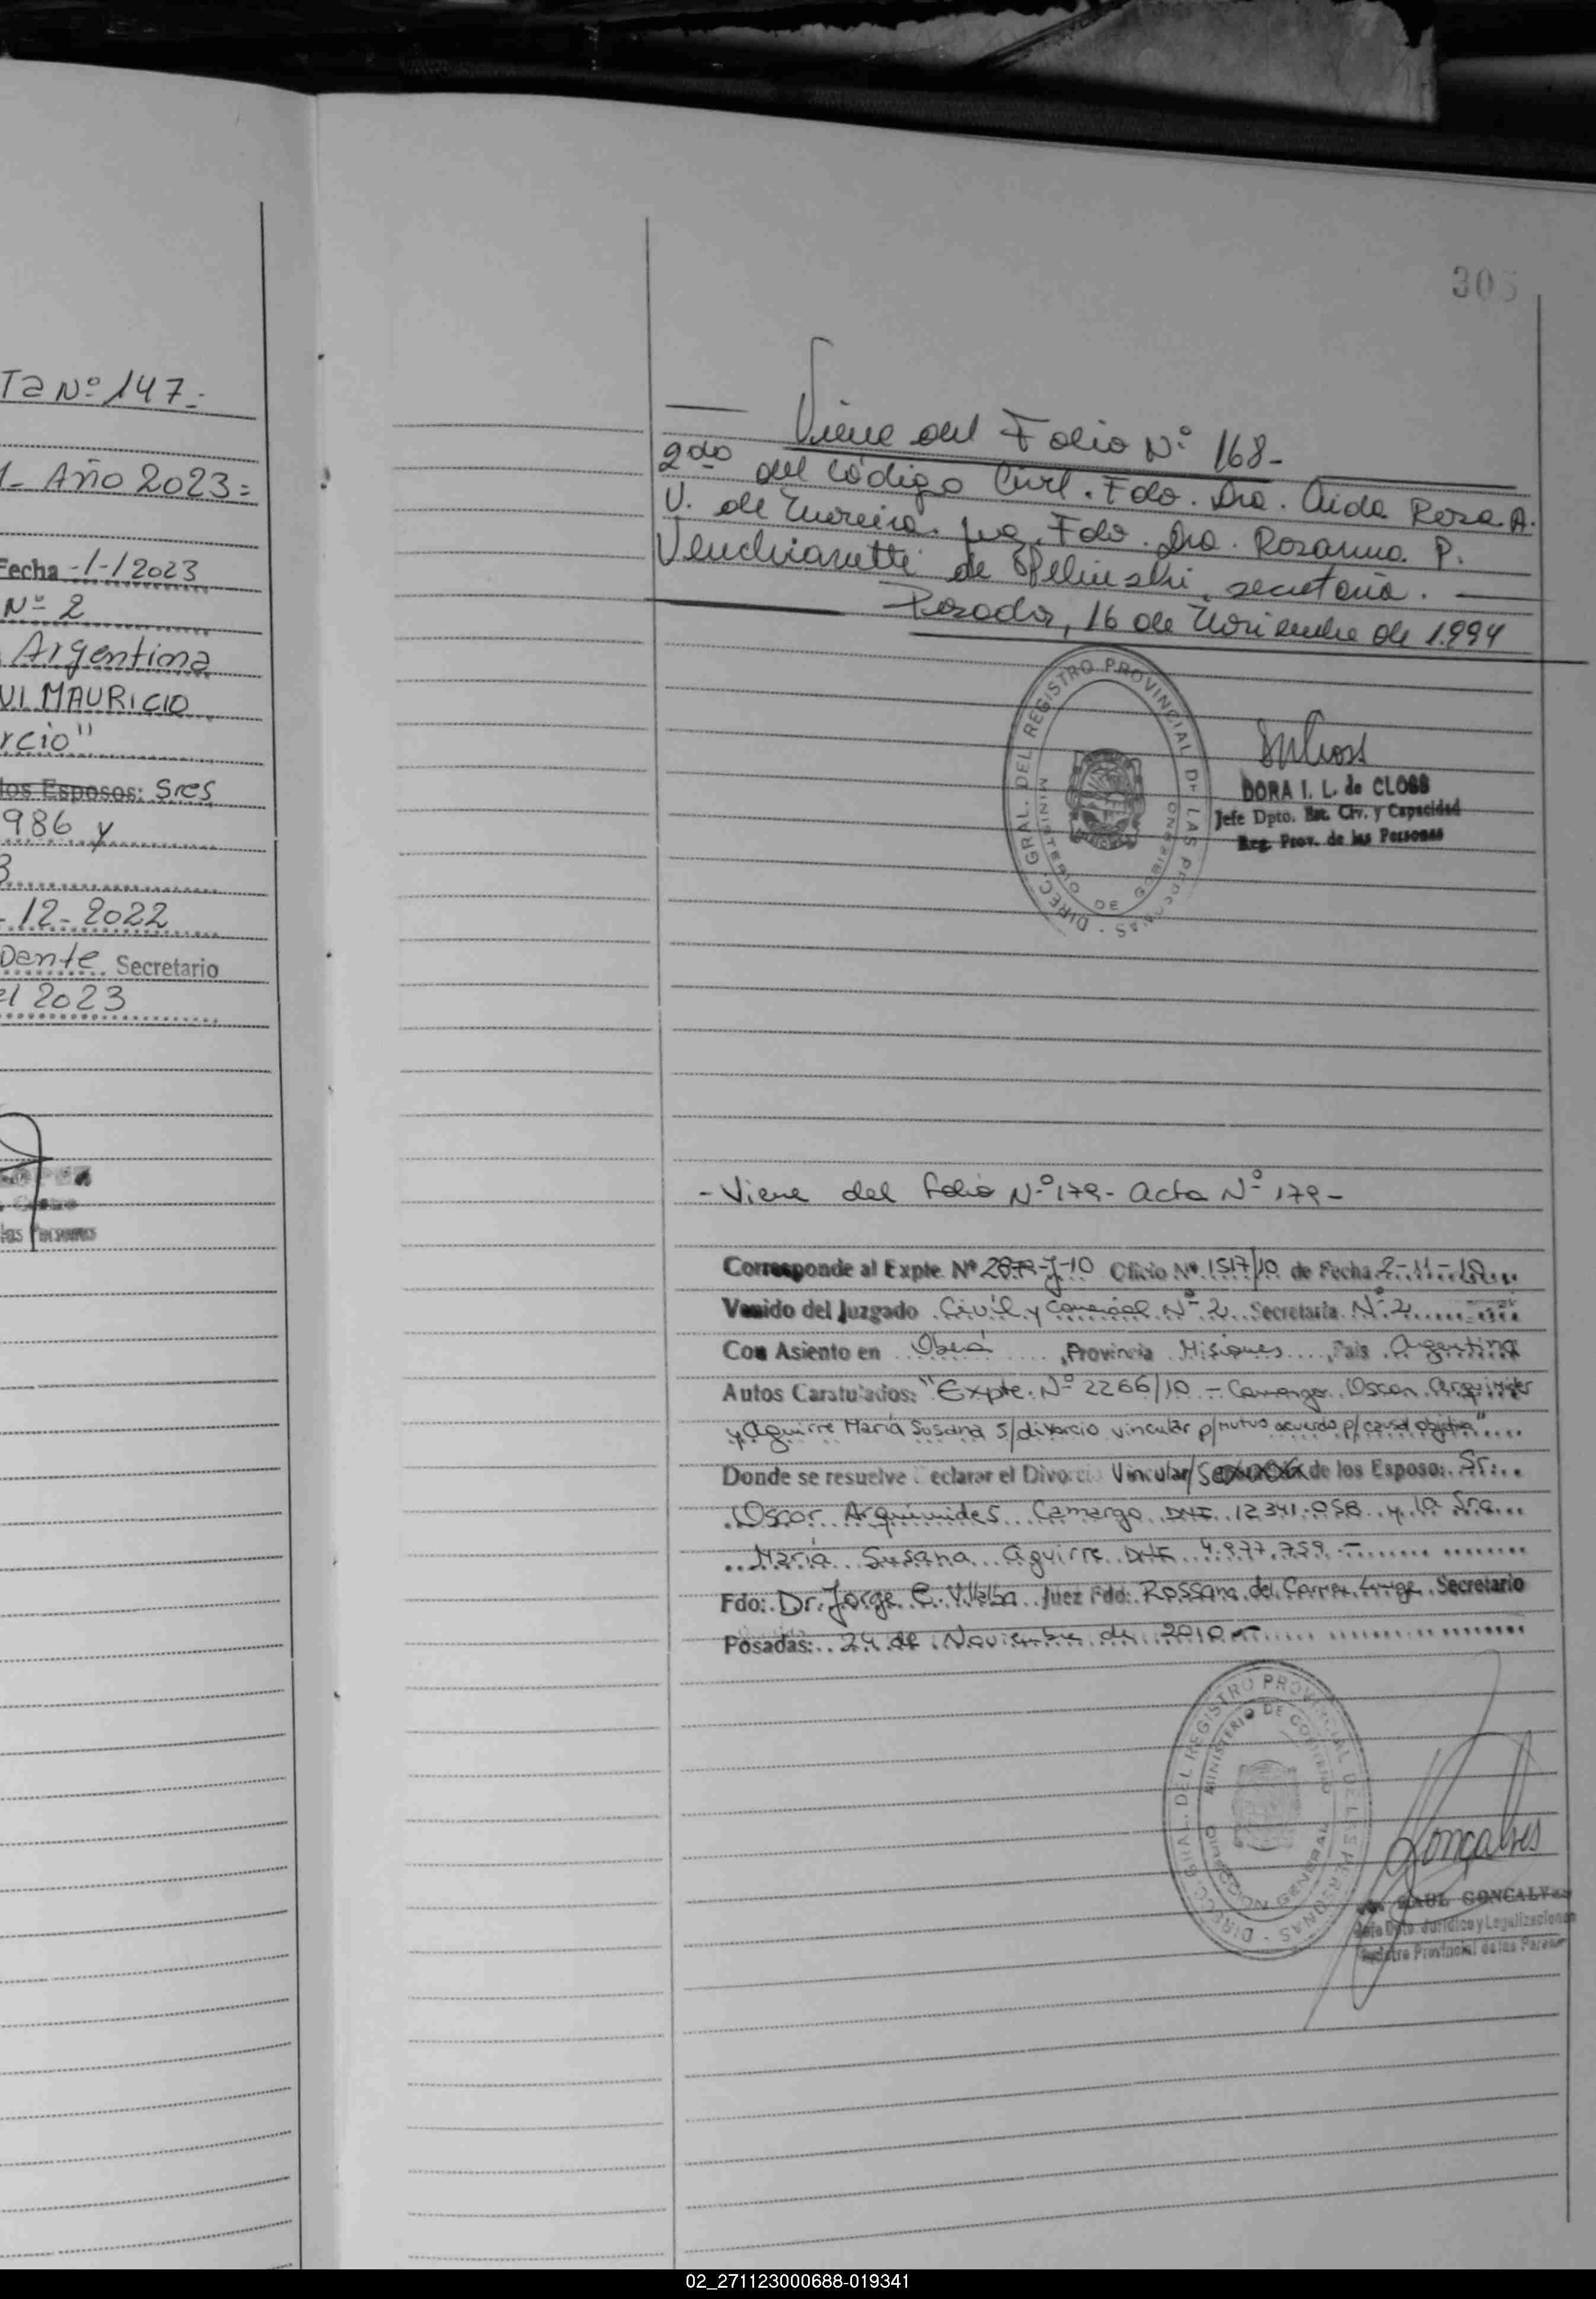 Ta Nº 147.-
1- Año 2023=
Fecha -1-/2023
Nº 2
Argentina
UI MAURICIO
rcio"
los Esposos: Sres
986 y
3
-12-2022
Dante Secretario
el 2023
las Personas
305
Viene del Folio Nº 168-
2do del Código Civil. Fdo. Dra. Aida Rosa A.
V. de Moreira. Juez. Fdo. Dra. Rosanna P.
Venchiarutti de , secretaria.
Posadas, 16 de Noviembre de 1.994
DIREC. GRAL. DEL REGISTRO PROVINCIAL DE LAS PERSONAS -
MINISTERIO DE GOBIERNO
DORA I. L. de CLOSS
Jefe Dpto. Est. Civ. y Capacidad
Reg. Prov. de las Personas
- Viene del folio Nº 179- Acta Nº 179-
Corresponde al Expte. Nº 2879-J-10 Oficio Nº 1517/10 de Fecha 2-11-10
Venido del Juzgado Civil y Comercial Nº 2 Secretaría Nº 2
Con Asiento en Oberá, Provincia Misiones, País Argentina
Autos Caratulados: "Expte. Nº 2266/10 - Camargo Oscar Arquimides
y Aguirre María Susana s/divorcio vincular p/mutuo acuerdo p/causal objetiva"
Donde se resuelve Declarar el Divorcio Vincular/ de los Esposo: Sr:
Oscar Arquimides Camargo DNI 12.341.058 y la Sra
María Susana Aguirre DNI 4.977.759 -
Fdo: Dr. Jorge E. Villalba Juez Fdo: Rossana del Carmen Secretario
Posadas: 24 de Noviembre de 2010 -
DIRECC. GRAL. DEL REGISTRO PROVINCIAL DE LAS PERSONAS -
MINISTERIO DE GOBIERNO
DIRECCION GENERAL
Gonçalves
RAUL GONCALVES
Jefe Dpto. Jurídico y Legalizaciones
Registro Provincial de las Personas
02_271123000688-019341